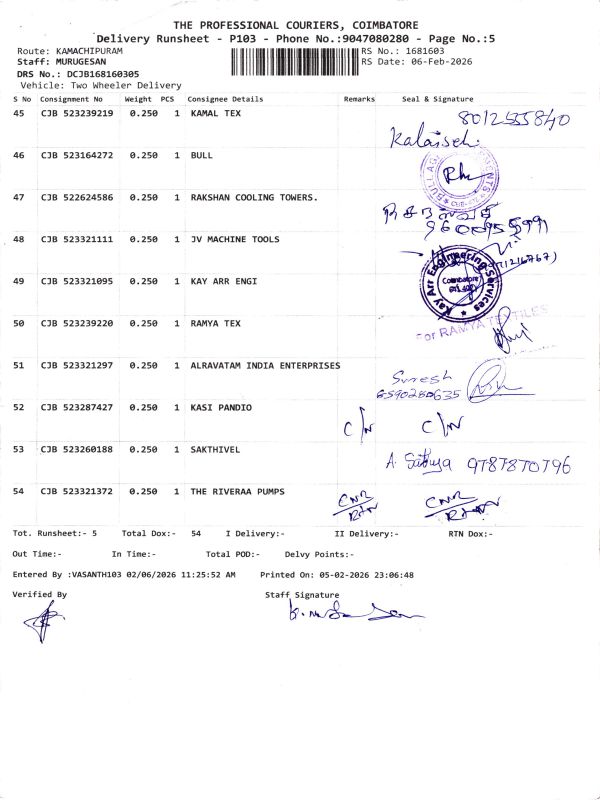 THE PROFESSIONAL COURIERS, COIMBATORE
Delivery Runsheet - P103 - Phone No.:9047080280 - Page No.:5
Route: KAMACHIPURAM
RS No.: 1681603
Staff: MURUGESAN
RS Date: 06-Feb-2026
DRS No.: DCJB168160305
Vehicle: Two Wheeler Delivery
S No Consignment No Weight PCS Consignee Details Remarks Seal & Signature
45 CJB 523239219 0.250 1 KAMAL TEX
46 CJB 523164272 0.250 1 BULL
47 CJB 522624586 0.250 1 RAKSHAN COOLING TOWERS.
48 CJB 523321111 0.250 1 JV MACHINE TOOLS
Kay Arr Engineering Services
Coimbatore
49 CJB 523321095 0.250 1 KAY ARR ENGI
50 CJB 523239220 0.250 1 RAMYA TEX
For RAMYA TEXTILES
51 CJB 523321297 0.250 1 ALRAVATAM INDIA ENTERPRISES
Suresh
6590280635
52 CJB 523287427 0.250 1 KASI PANDIO C/N C/N
53 CJB 523260188 0.250 1 SAKTHIVEL A. 9787870796
54 CJB 523321372 0.250 1 THE RIVERAA PUMPS
CNR CNR
RTN RTN
Tot. Runsheet:- 5 Total Dox:- 54 I Delivery:- II Delivery:- RTN Dox:-
Out Time:- In Time:- Total POD:- Delvy Points:-
Entered By :VASANTH103 02/06/2026 11:25:52 AM Printed On: 05-02-2026 23:06:48
Verified By Staff Signature